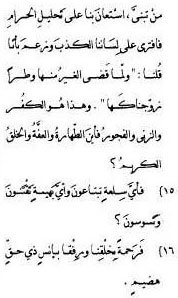 مَنْ تبنَّى، استعانَ بنا على تحليل الحرام
فافترى على لساننا الكذبَ وزعمَ بأنّا
قلنا: "ولمّا قضى الغيرُ منها وطراً
زوّجناكها". وهذا هو الكفرُ
والزنى والفجورُ فأينَ الطّهارةُ والعفّةُ والخلقُ
الكريمُ؟
١٥) فأيَّ سلعةٍ تبتاعونَ وأيَّ بهيمةٍ تقتنونَ
وتسوسونَ؟
١٦) فرحمةً بخلقِنا ورفقاً ببائسٍ ذي حقٍّ
هضيمٍ.